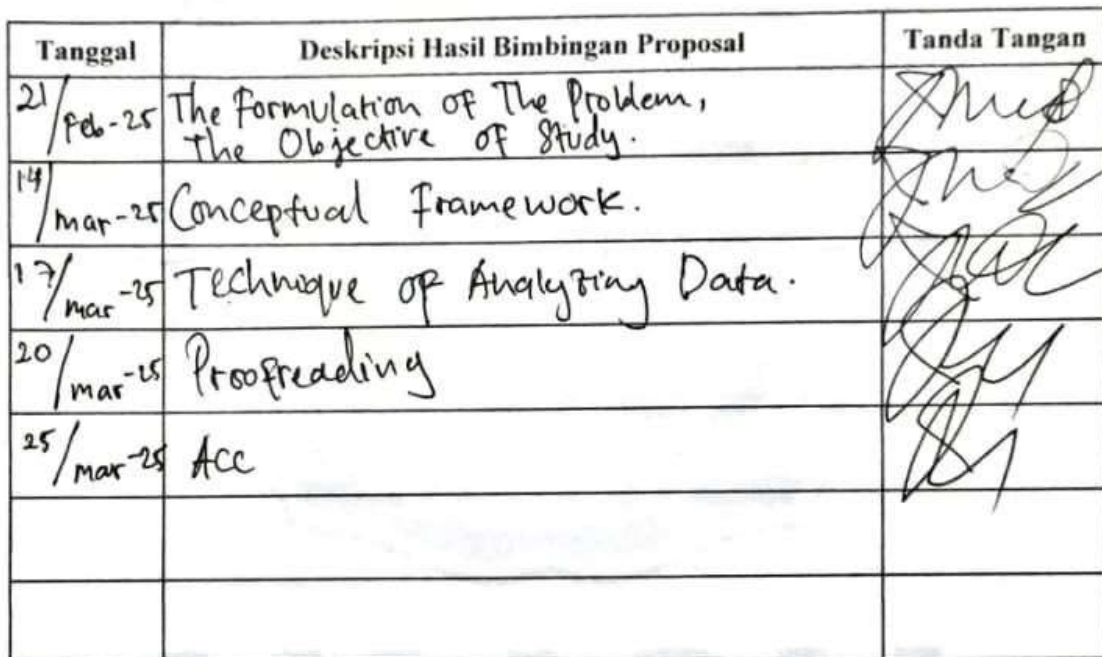 Tanggal Deskripsi Hasil Bimbingan Proposal Tanda Tangan
21/Feb-25 The Formulation of The Problem,
The Objective of Study.
14/mar-25 Conceptual Framework.
17/mar-25 Technique of Analyzing Data.
20/mar-25 Proofreading
25/mar-25 Acc